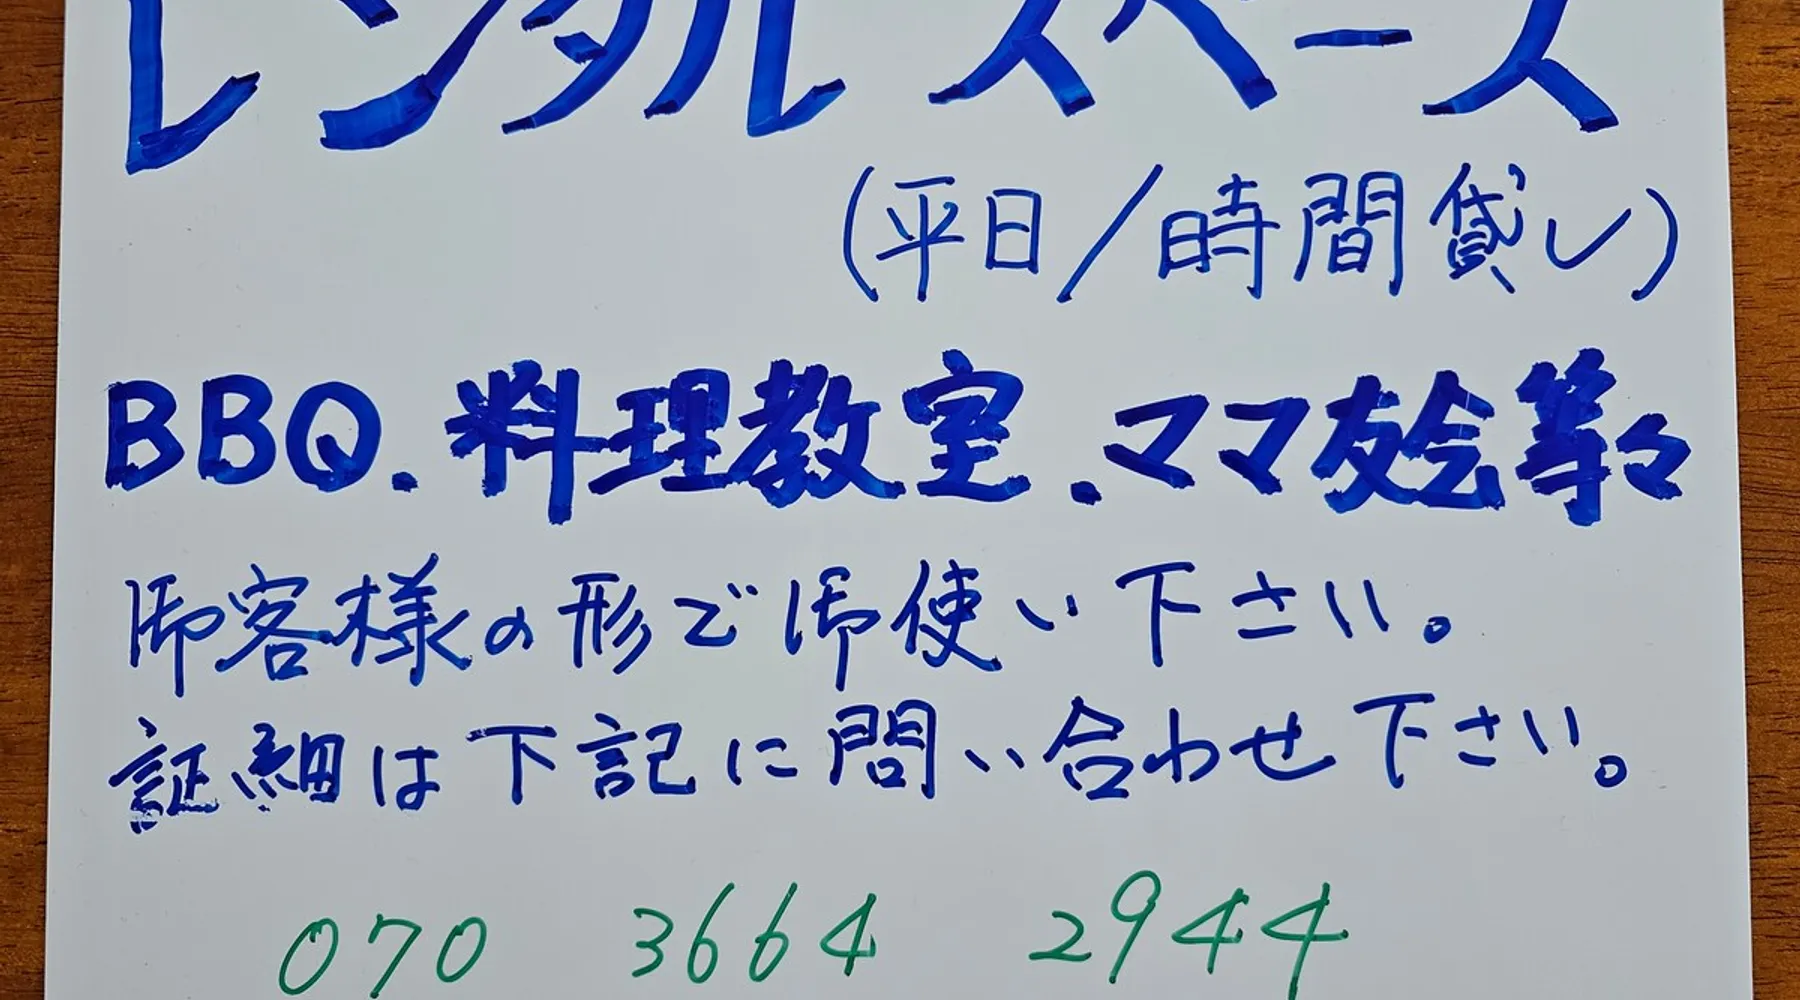 レンタルスペース
(平日/時間貸し)
BBQ.料理教室.ママ友会等々
御客様の形で御使い下さい。
証細は下記に問い合わせ下さい。
070 3664 2944